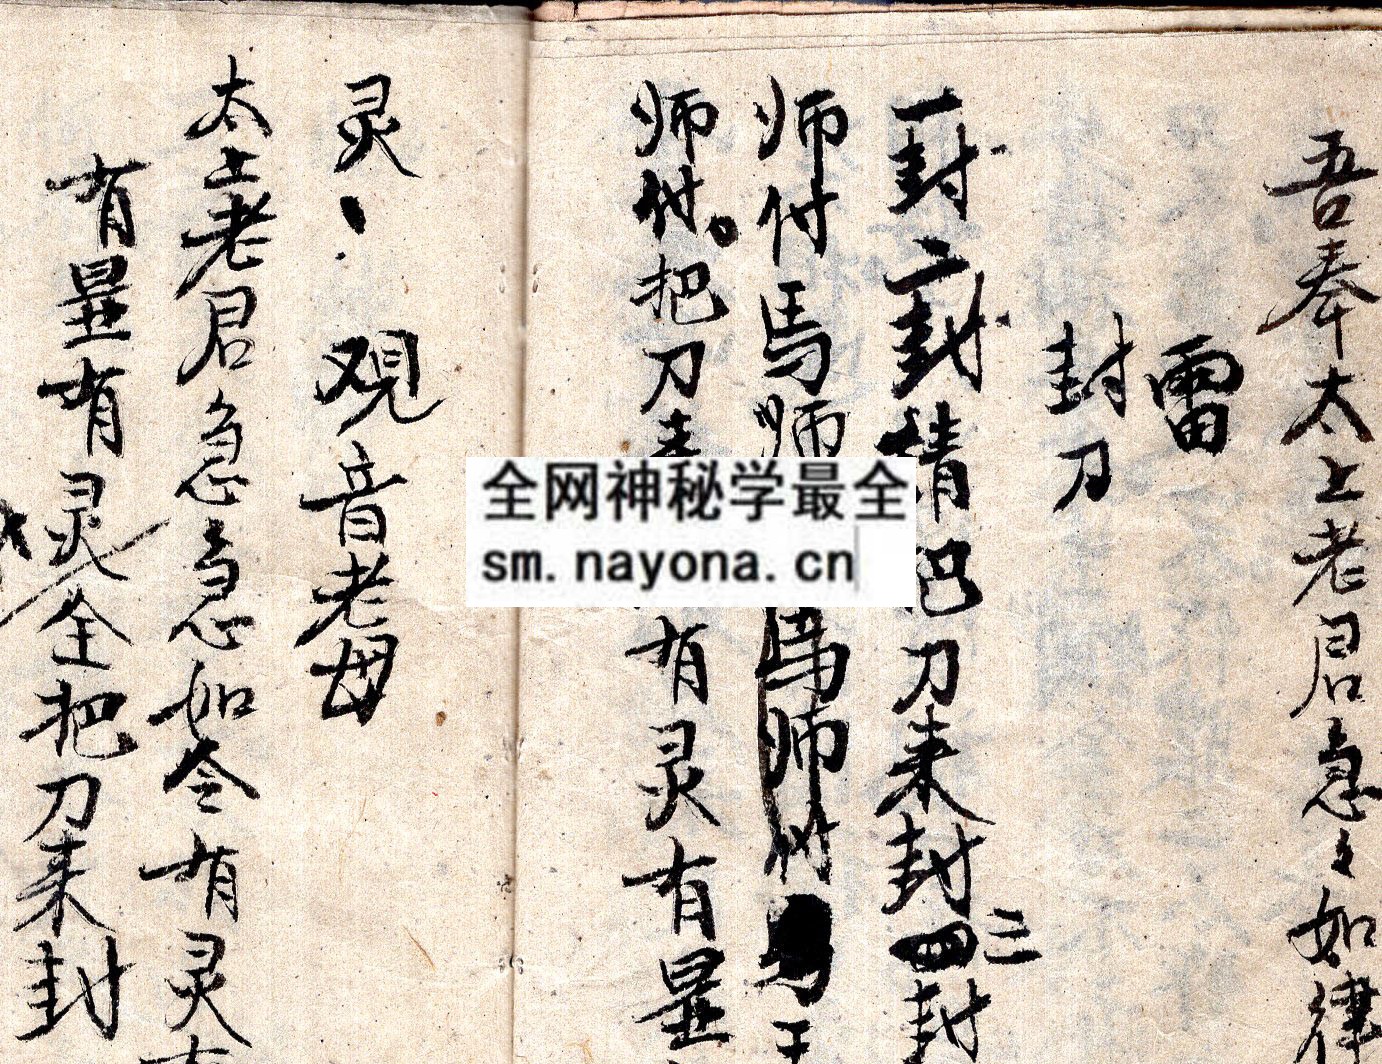 吾奉太上老君急々如律
雷
封刀
一封二封請把刀来封三四封
师付馬师馬师付馬
师付把刀来有灵有显
灵、观音老母
太上老君急急如令有灵
有显有灵全把刀来封
全网神秘学最全
sm.nayona.cn